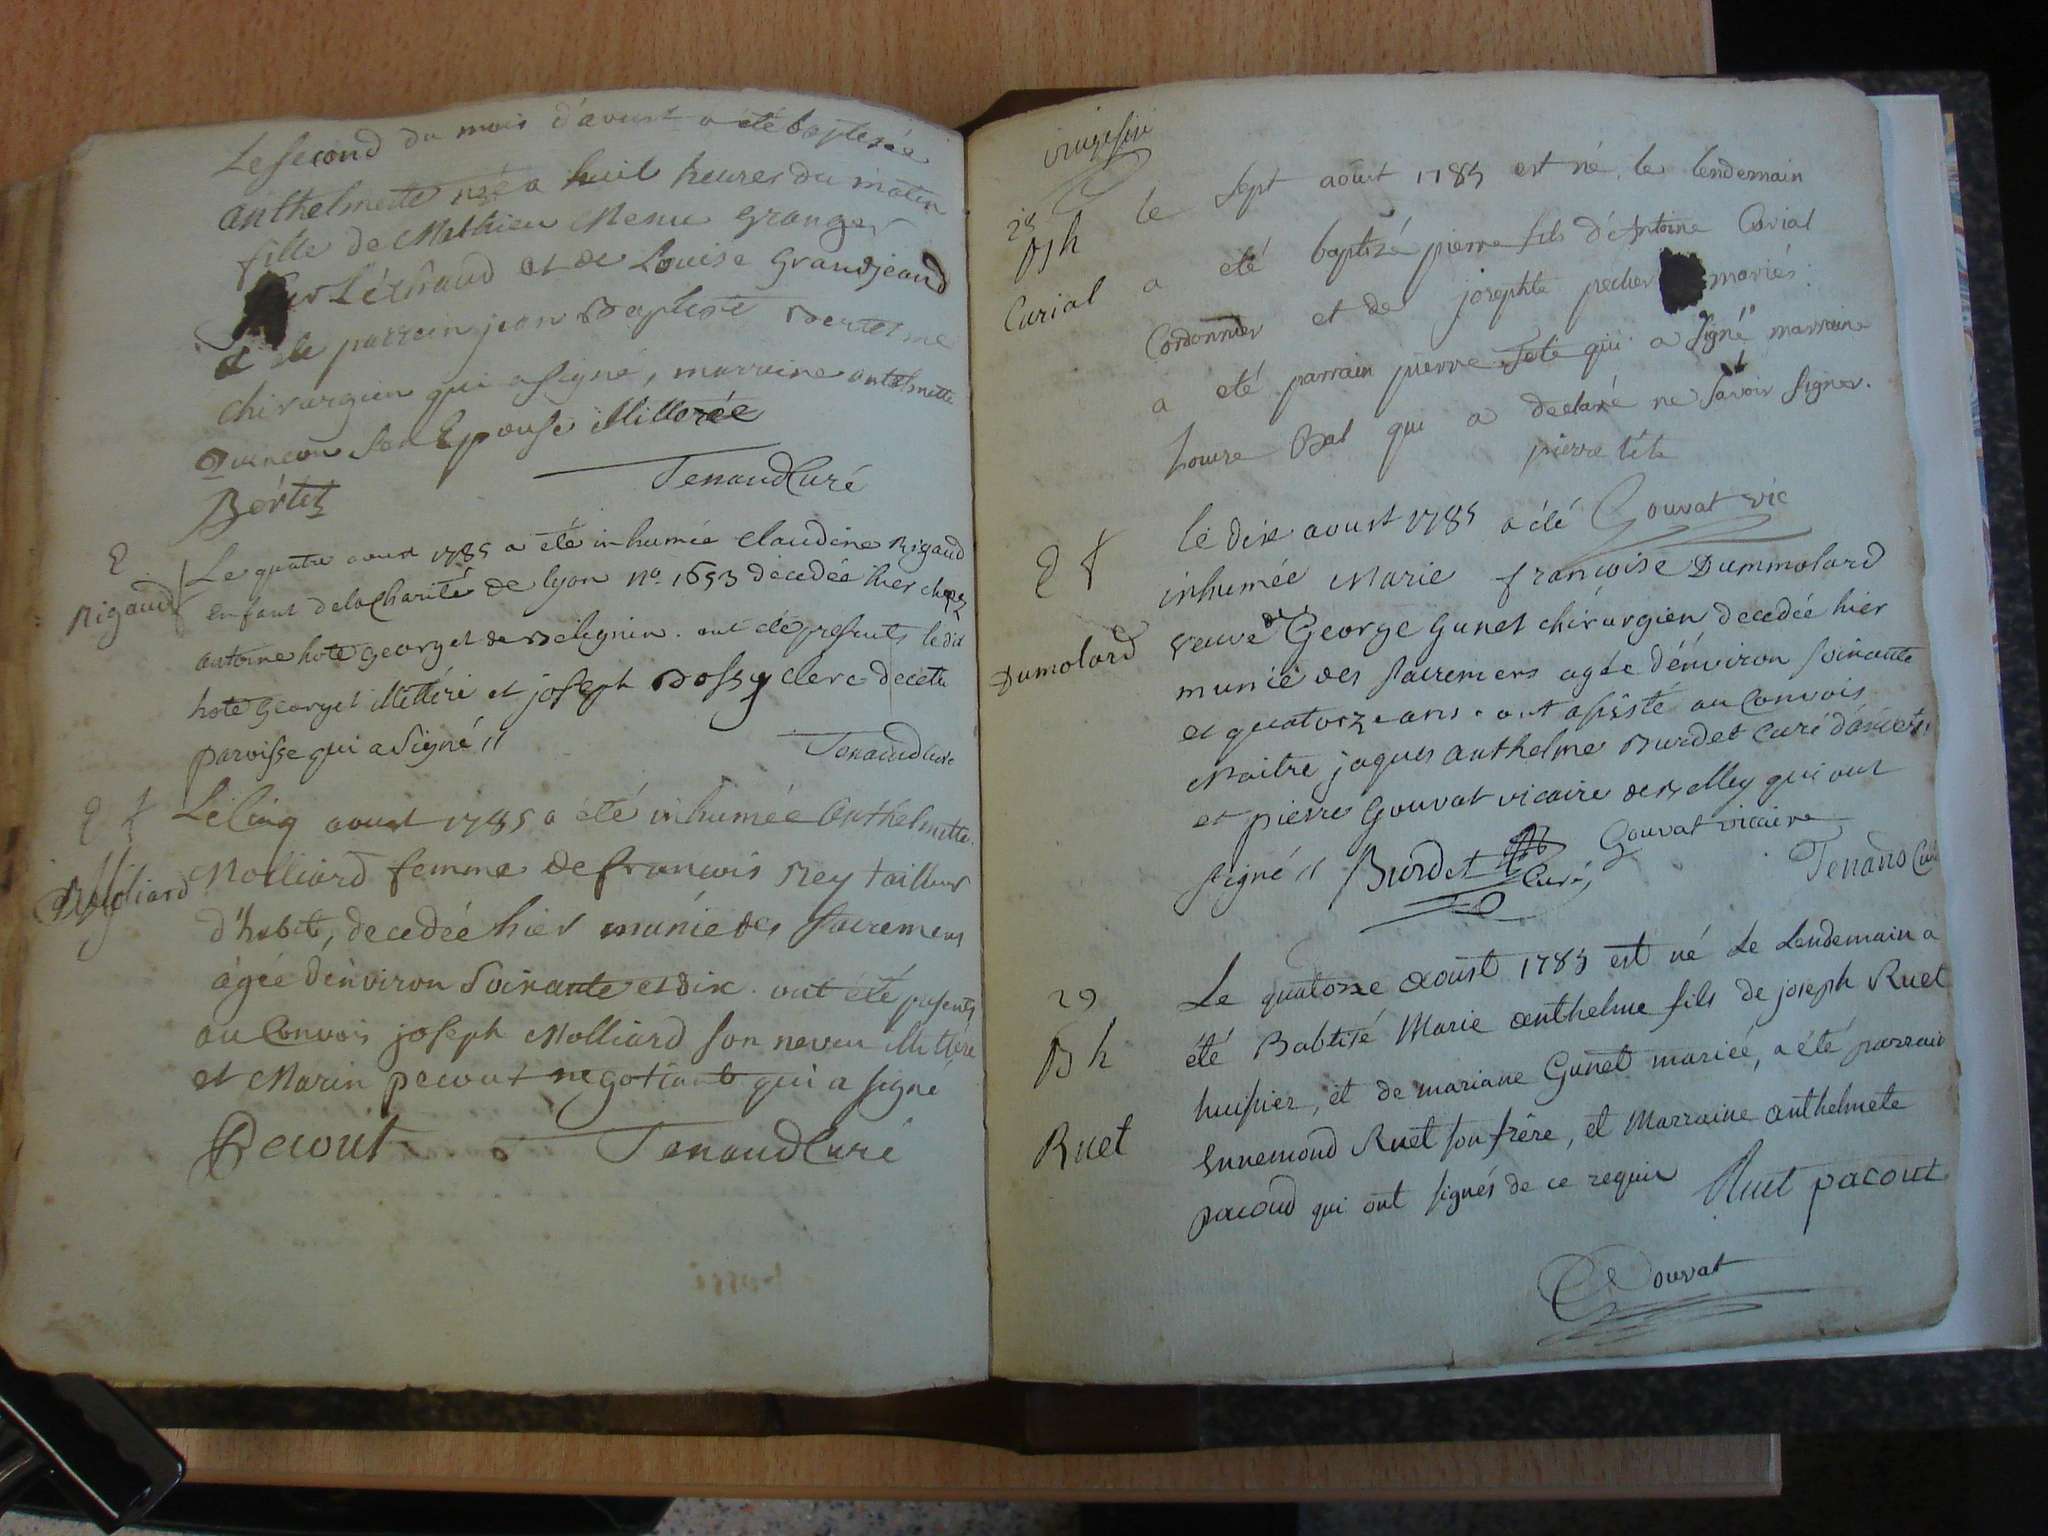 Le second du mois d'avust a été baptisée
anthelmette née a huit heures du matin
fille de Mathieu Menu Granger
sur Léchaud et de Louise Grandjeand
a été parrain jean Baptiste Bertet me
chirurgien qui a signé, marraine antelmette
Quincon son Epouse illitorée
Tenaud Curé
Bertet
E
Rigaud
Le quatre aoust 1785 a été inhumée claudine Rigaud
enfant de la Charité de lyon no. 1653 decedée hier chez
antoine hote georget de Belignin. ont été presents le dit
hote georget illitéré et joseph Dossy clerc de cette
paroisse qui a signé //
Tenaud Curé
E f
Molliard
Le Cinq aoust 1785 a été inhumée Anthelmette
Molliard femme de francois Rey tailleur
d'habit, decedée hier munie des sacremens
agée d'énviron soixante et dix. ont été présents
au Convois joseph Molliard son neveu illitéré
et Marin pecout negotiant qui a signé
Pecout
Tenaud Curé
28
Bh
Curial
le sept août 1785 est né, le lendemain
a eté baptisé pierre fils d'Antoine Curial
Cordonnier et de josephte mariés
a eté parrain pierre Tete qui a signé marraine
Louise Bal qui a declaré ne savoir signer.
pierre tête
Gouvat vic
E f
Dumolard
le dix avust 1785 a été
inhumée Marie françoise Dummolard
veuve de George Gunet chirurgien decedée hier
munie des sacremens agée d'énviron soixante
et quatorze ans. ont asisté au Convois
Maitre jaques anthelme Burdet Curé
et pierre Gouvat vicaire de Belley qui ont
signé // Burdet Curé, Gouvat vicaire
Tenand Curé
29
Bh
Ruet
Le quatorze aoust 1785 est né Le Lendemain a
été Babtisé Marie anthelme fils de joseph Ruet
huissier, et de mariane Gunet mariée, a été parrain
Ennemond Ruet son frère, et Marraine anthelmete
pacoud qui ont signés de ce requis Ruet pacout
Gouvat